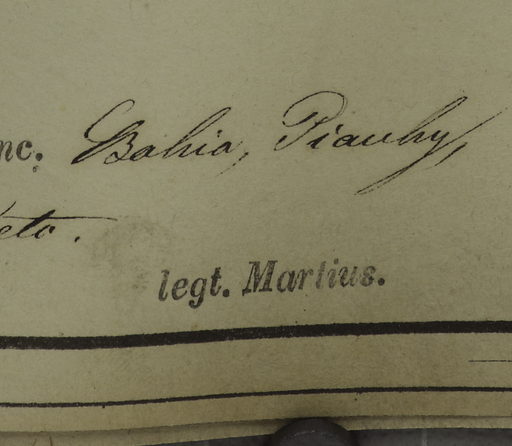 nc. Bahia, Piauhy,
eto.
legt. Martius.